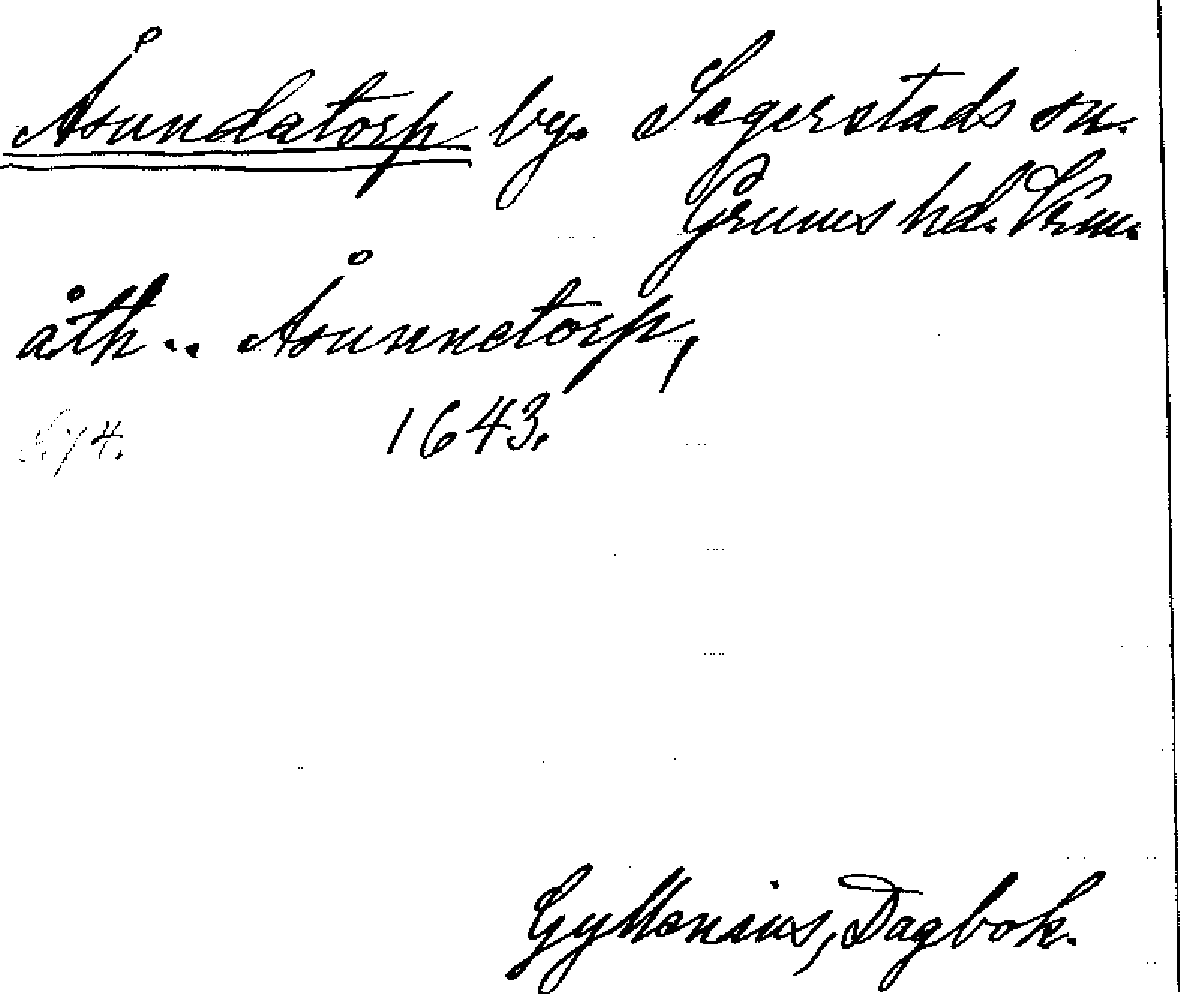 Åsundatorp by. Segerstads sn.
Grums hd. Vrm.
åth .. Åsunnetorp,
1643.
Gyllenius, Dagbok.